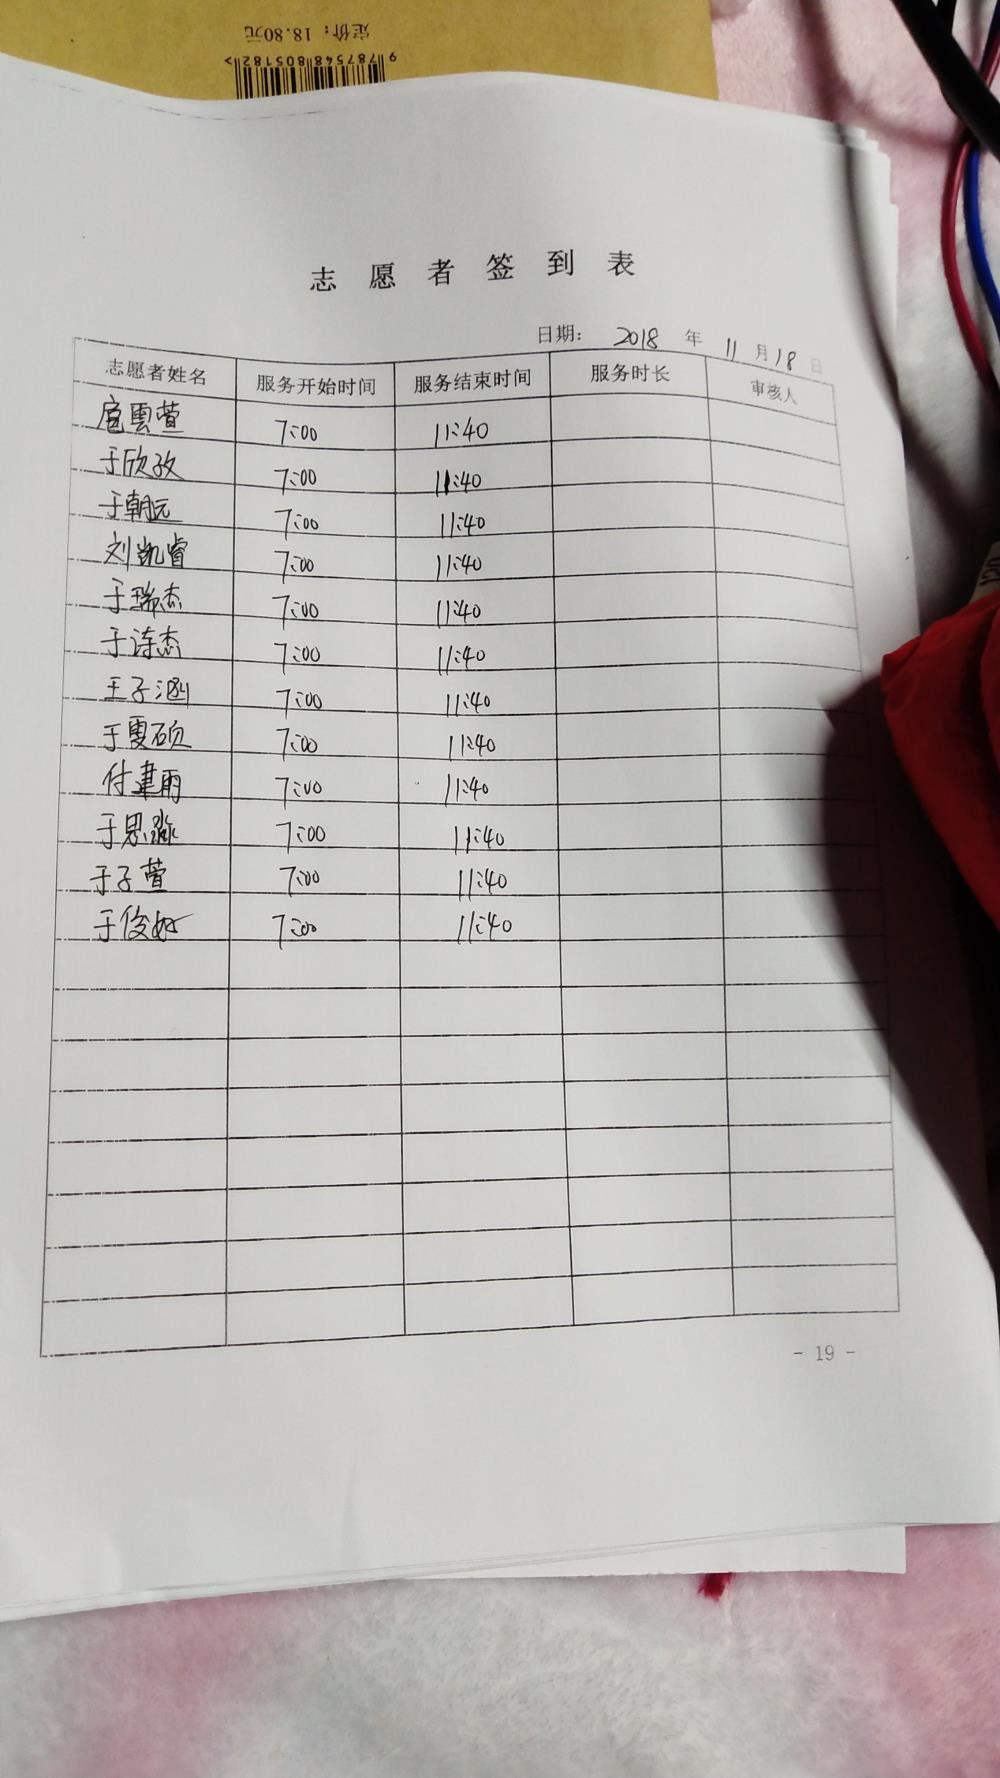 定价：18.80元
9787548805182>
志愿者签到表
日期： 2018 年 11 月 18 日
志愿者姓名 服务开始时间 服务结束时间 服务时长 审核人
扈云萱 7:00 11:40
于欣孜 7:00 11:40
于朝元 7:00 11:40
刘凯睿 7:00 11:40
于瑞杰 7:00 11:40
于涛杰 7:00 11:40
王子涵 7:00 11:40
于雯硕 7:00 11:40
付建雨 7:00 11:40
于思淼 7:00 11:40
于子萱 7:00 11:40
于俊好 7:00 11:40
- 19 -